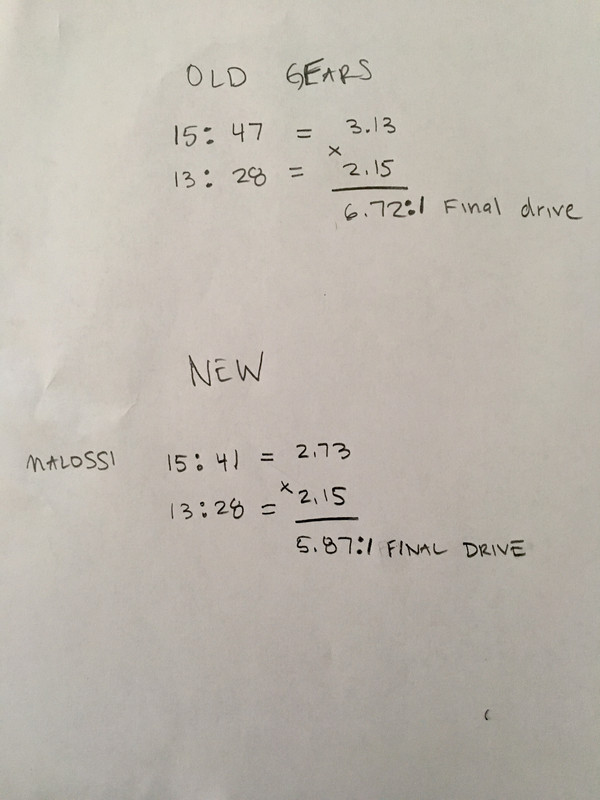 OLD GEARS
15: 47 = 3.13
13: 28 = × 2.15
6.72:1 Final drive
NEW
MALOSSI 15: 41 = 2.73
13:28 = × 2.15
5.87:1 FINAL DRIVE